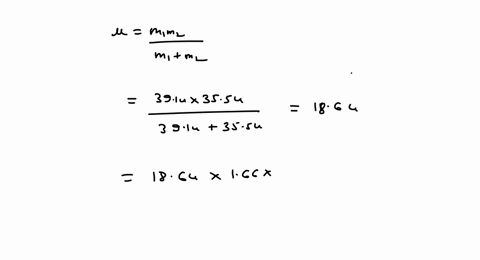 μ = m₁m₂ / m₁+m₂
= 39.1u × 35.5u / 39.1u + 35.5u = 18.6u
= 18.6u × 1.66 ×